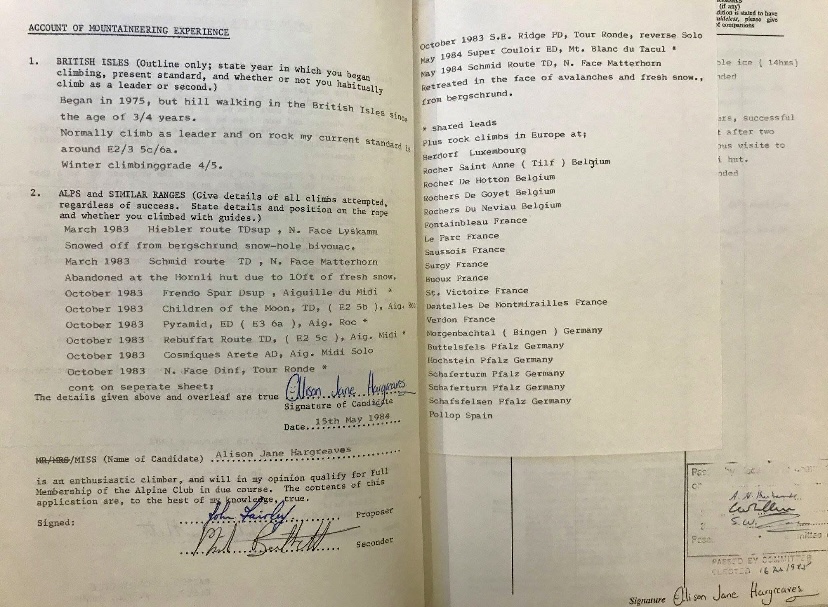 ACCOUNT OF MOUNTAINEERING EXPERIENCE
1. BRITISH ISLES (Outline only; state year in which you began
climbing, present standard, and whether or not you habitually
climb as a leader or second.)
Began in 1975, but hill walking in the British Isles since
the age of 3/4 years.
Normally climb as leader and on rock my current standard is
around E2/3 5c/6a.
Winter climbinggrade 4/5.
2. ALPS and SIMILAR RANGES (Give details of all climbs attempted,
regardless of success. State details and position on the rope
and whether you climbed with guides.)
March 1983 Hiebler route TDsup , N. Face Lyskamm
Snowed off from bergschrund snow-hole bivouac.
March 1983 Schmid route TD , N. Face Matterhorn
Abandoned at the Hornli hut due to 10ft of fresh snow.
October 1983 Frendo Spur Dsup , Aiguille du Midi *
October 1983 Children of the Moon, TD, ( E2 5b ), Aig. Roc
October 1983 Pyramid, ED ( E3 6a ), Aig. Roc *
October 1983 Rebuffat Route TD, ( E2 5c ), Aig. Midi *
October 1983 Cosmiques Arete AD, Aig. Midi Solo
October 1983 N. Face Dinf, Tour Ronde *
cont on seperate sheet;
The details given above and overleaf are true Alison Jane Hargreaves
Signature of Candidate
Date 15th May 1984
MR/MRS/MISS (Name of Candidate) Alison Jane Hargreaves
is an enthusiastic climber, and will in my opinion qualify for full
Membership of the Alpine Club in due course. The contents of this
application are, to the best of my knowledge, true.
Signed: Proposer
Seconder
October 1983 S.E. Ridge PD, Tour Ronde, reverse Solo
May 1984 Super Couloir ED, Mt. Blanc du Tacul *
May 1984 Schmid Route TD, N. Face Matterhorn
Retreated in the face of avalanches and fresh snow.,
from bergschrund.
* Shared leads
Plus rock climbs in Europe at;
Berdorf Luxembourg
Rocher Saint Anne ( Tilf ) Belgium
Rocher De Hotton Belgium
Rochers De Goyet Belgium
Rochers Du Neviau Belgium
Fontainbleau France
Le Parc France
Saussois France
Surgy France
Buoux France
St. Victoire France
Dentelles De Montmirailles France
Verdon France
Morgenbachtal ( Bingen ) Germany
Buttelsfels Pfalz Germany
Hochstein Pfalz Germany
Schaferturm Pfalz Germany
Schaferturm Pfalz Germany
Schafsfelsen Pfalz Germany
Pollop Spain
(if any)
please give
of companions
ice ( 14hrs)
successful
after two
visite to
hut.
PASSED BY COMMITTEE
ELECTED
Signature Alison Jane Hargreaves